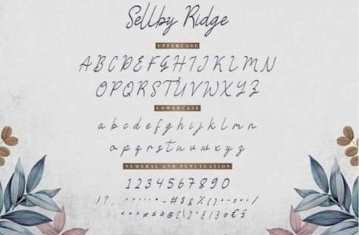 Sellby Ridge
UPPERCASE
ABCDEFGHIJKLMN
OPQRSTUVWXYZ
LOWERCASE
abcdefghijklmn
opqrstuvwxyz
NUMERAL AND PUNCTUATION
1234567890